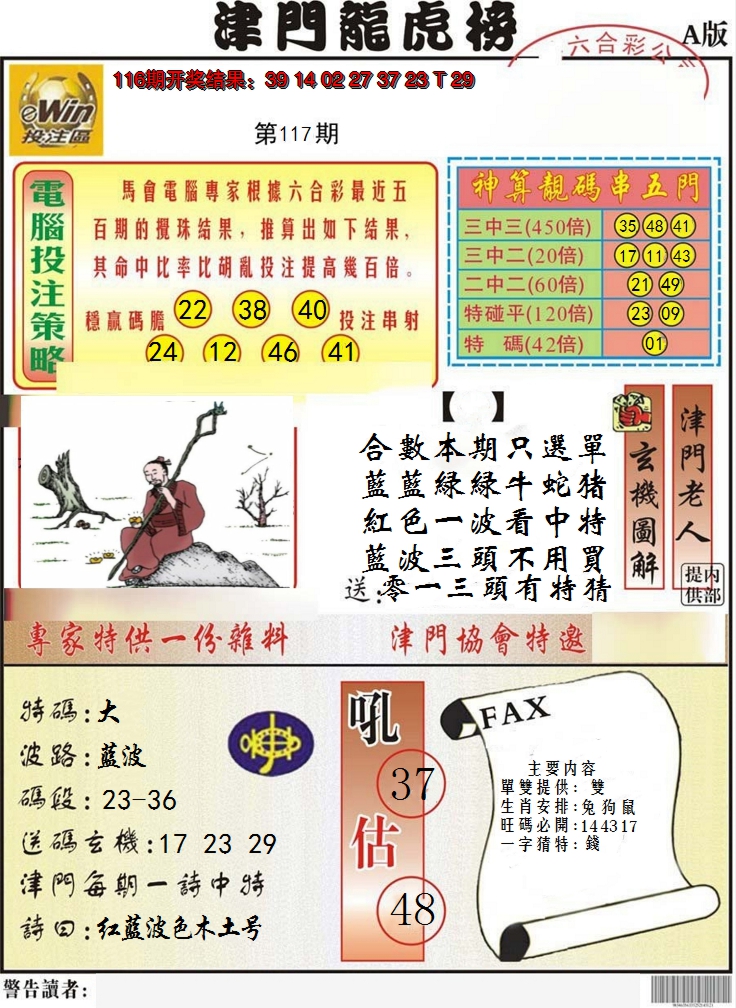 津門龍虎榜
A版
六合彩公
116期开奖结果：39 14 02 27 37 23 T 29
eWin
投注區
第117期
電腦投注策略
馬會電腦專家根據六合彩最近五
百期的攪珠结果，推算出如下结果，
其命中比率比胡亂投注提高幾百倍。
穩赢碼膽 22 38 40 投注串射
24 12 46 41
神算靚碼串五門
三中三(450倍) 35 48 41
三中二(20倍) 17 11 43
二中二(60倍) 21 49
特碰平(120倍) 23 09
特 碼(42倍) 01
【 】
合數本期只選單
藍藍緑緑牛蛇猪
紅色一波看中特
藍波三頭不用買
送:零一三頭有特猜
玄機圖解
津門老人
内部提供
專家特供一份雜料
津門協會特邀
特碼:大
波路:藍波
碼段:23-36
送碼玄機:17 23 29
津門每期一詩中特
詩曰:红藍波色木土号
吼
37
估
48
FAX
主要内容
單雙提供: 雙
生肖安排:兔狗鼠
旺碼必開:144317
一字猜特:錢
警告讀者: